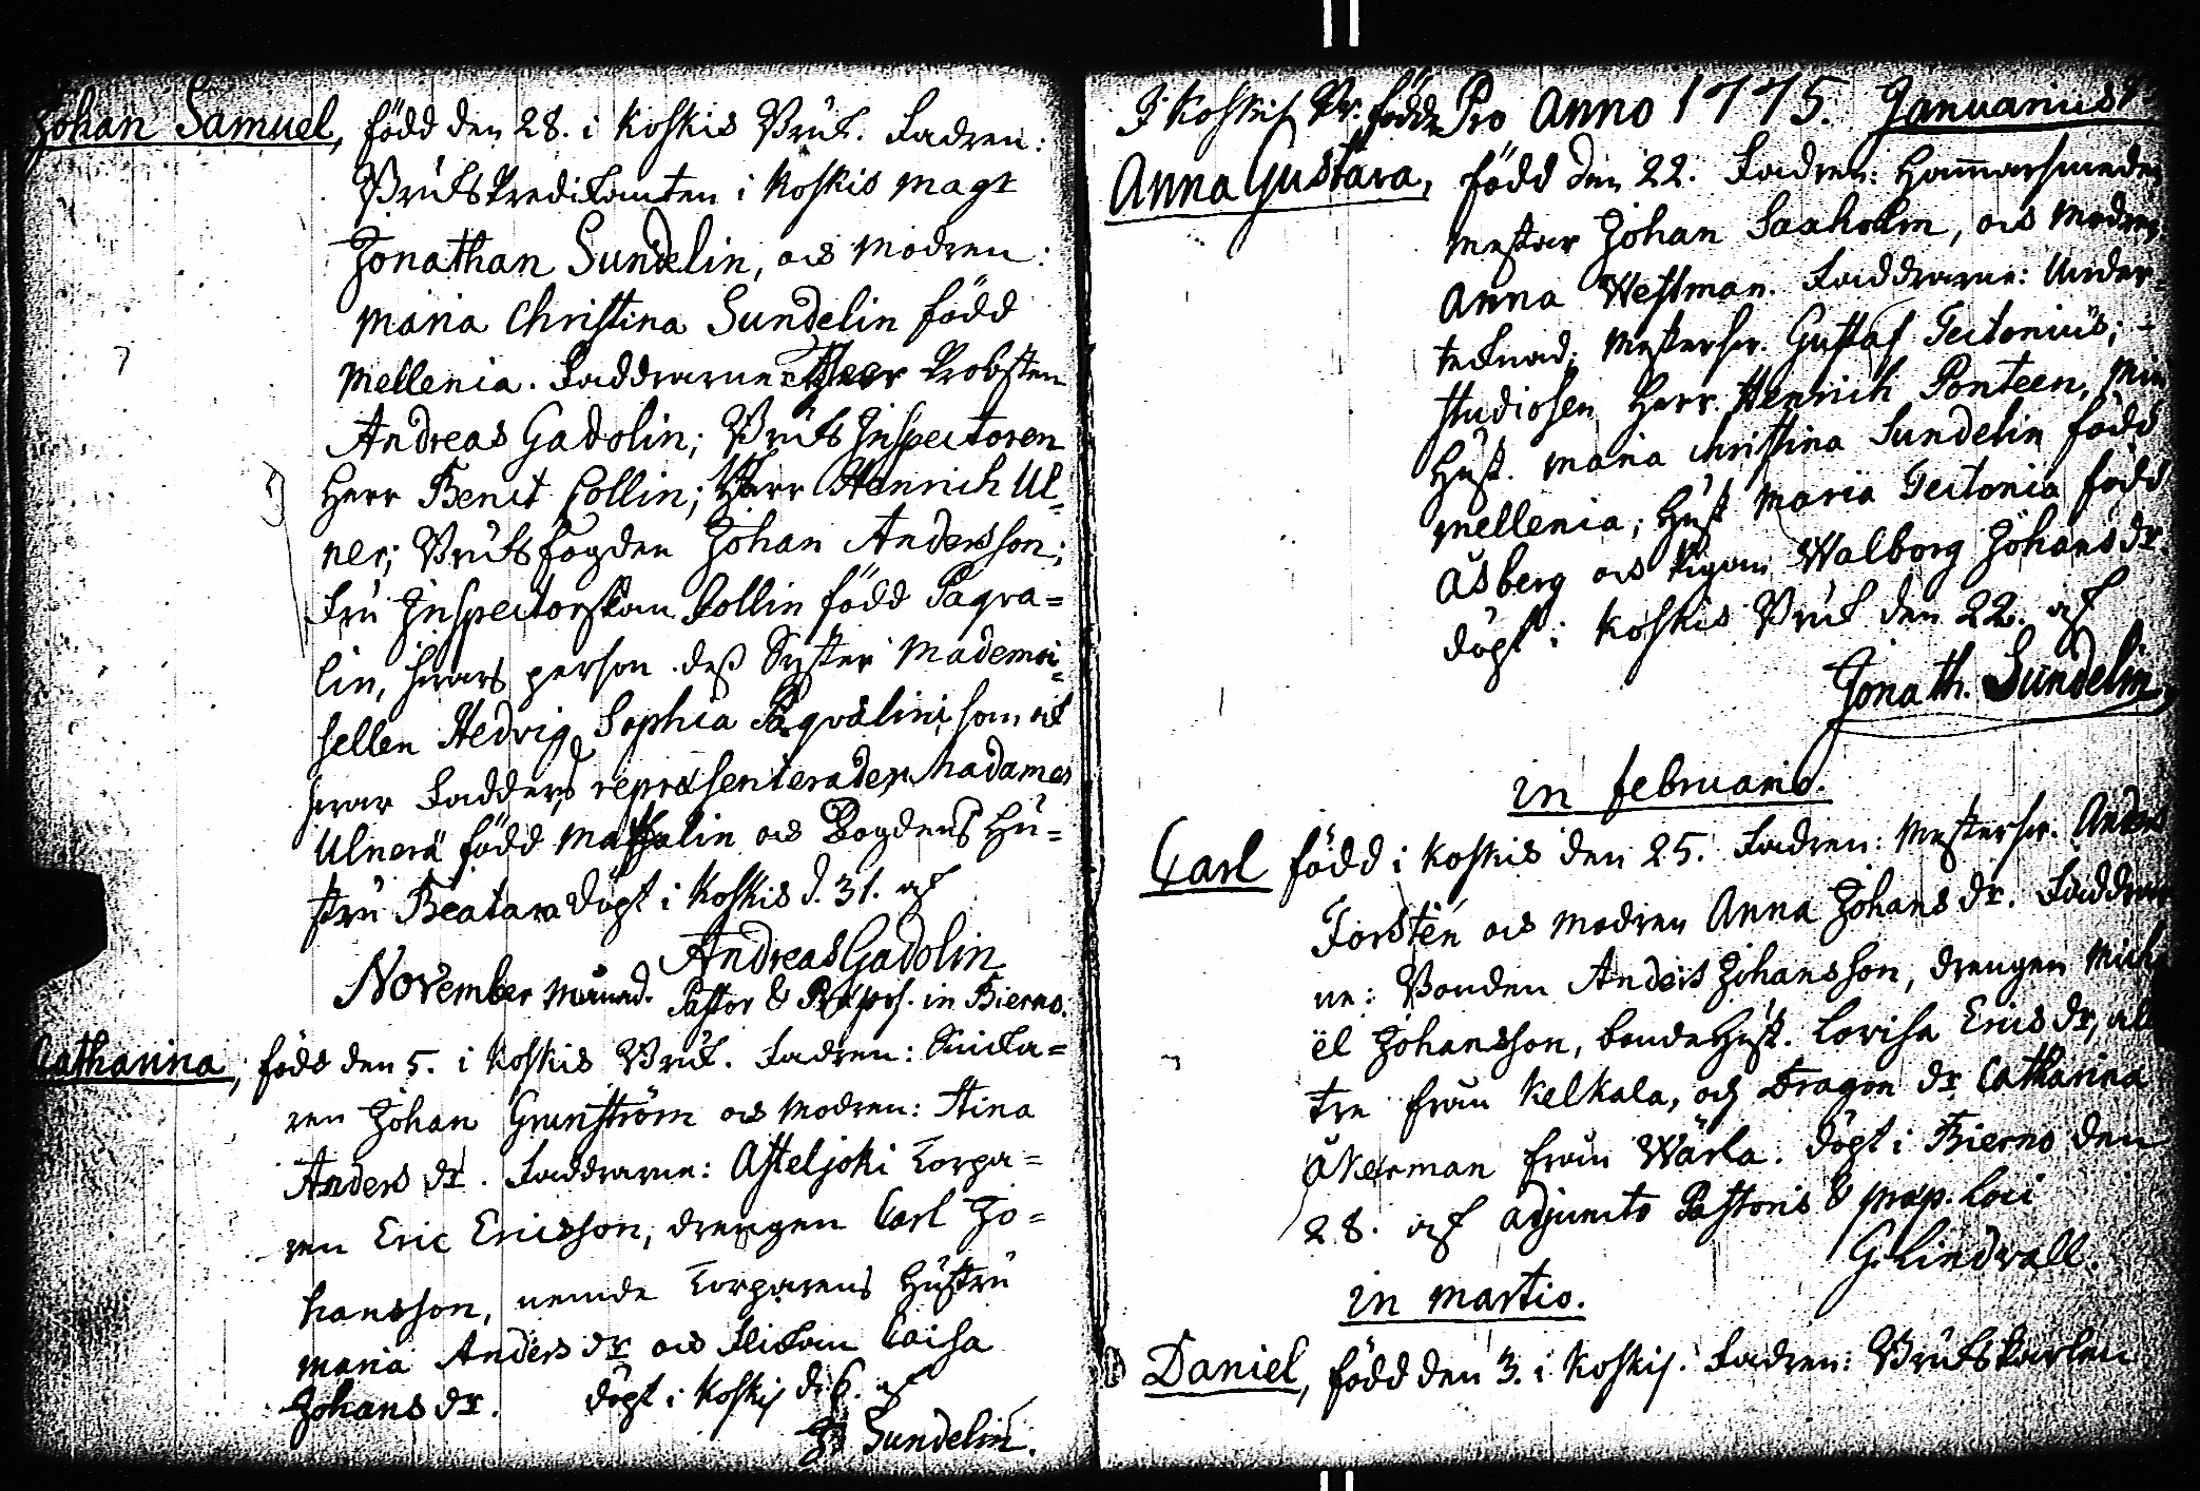 Johan Samuel, född den 28. i Koskis Bruk. Fadren:
Bruks Predikanten i Koskis Mag
Jonathan Sundelin, och Modren:
Maria Christina Sundelin född
Mellenia. Faddrarne: Herr Probsten
Andreas Gadolin; Bruks Inspectoren
Herr Benct Collin; Herr Henrich Ul=
ner; Bruksfogden Johan Andersson;
Fru Inspectorskan Collin född Paqva=
lin, hvars person dess Syster Mademoi=
sellen Hedvig Sophia Paqvalin, som ock
war Fadder, repræsenterade, Madame
Ulnera född och Bogdens Hu=
stru Beata. Döpt i Koskis d. 31. af
Andreas Gadolin
November Månad. Pastor & Præpos. in Bierno.
Catharina, född den 5. i Koskis Bruk. Fadren: Snicka=
ren Johan Grunström och Modren: Stina
Anders dr. Faddrarne: Asteljoki Torpa=
ren Eric Ericsson, drengen Carl Jo=
hansson, nemde Torparens Hustru
Maria Anders dr och Flickan Caisa
Johans dr. döpt i Koskis d. 6. af
J. Sundelin.
I Koskis Br. födde Pro Anno 1775. Januarius
Anna Gustava, född den 22. Fadren: Hamarsmeds
Mestar Johan Saxholm, och Modren
Anna Westman. Faddrarne: Under=
tecknad; Mestersv. Gustaf Tectonius;
Studiosen Herr Henrich Ponteen, Min
Hust. Maria Christina Sundelin född
Mellenia; Hust Maria Tectonia född
Åsberg och Pigan Walborg Johans dr.
döpt i Koskis Bruk den 22. af
Jonath. Sundelin
in februario.
Carl född i Koskis den 25. Fadren: Mestersv. Anders
Forsten och Modren Anna Johans dr. Faddrar
ne: Bonden Anders Johansson, drengen Mich
ël Johansson, bonde Hust. Lovisa Erics dr, al
tre från Kelkala, och Dragon dr Catharina
Åkerman från Wärla. Döpt i Bierno den
28. af adjuncto Pastoris & præp. loci
G. Lindwall.
in martio.
Daniel, född den 3. i Koskis. Fadren: Brukskarlen